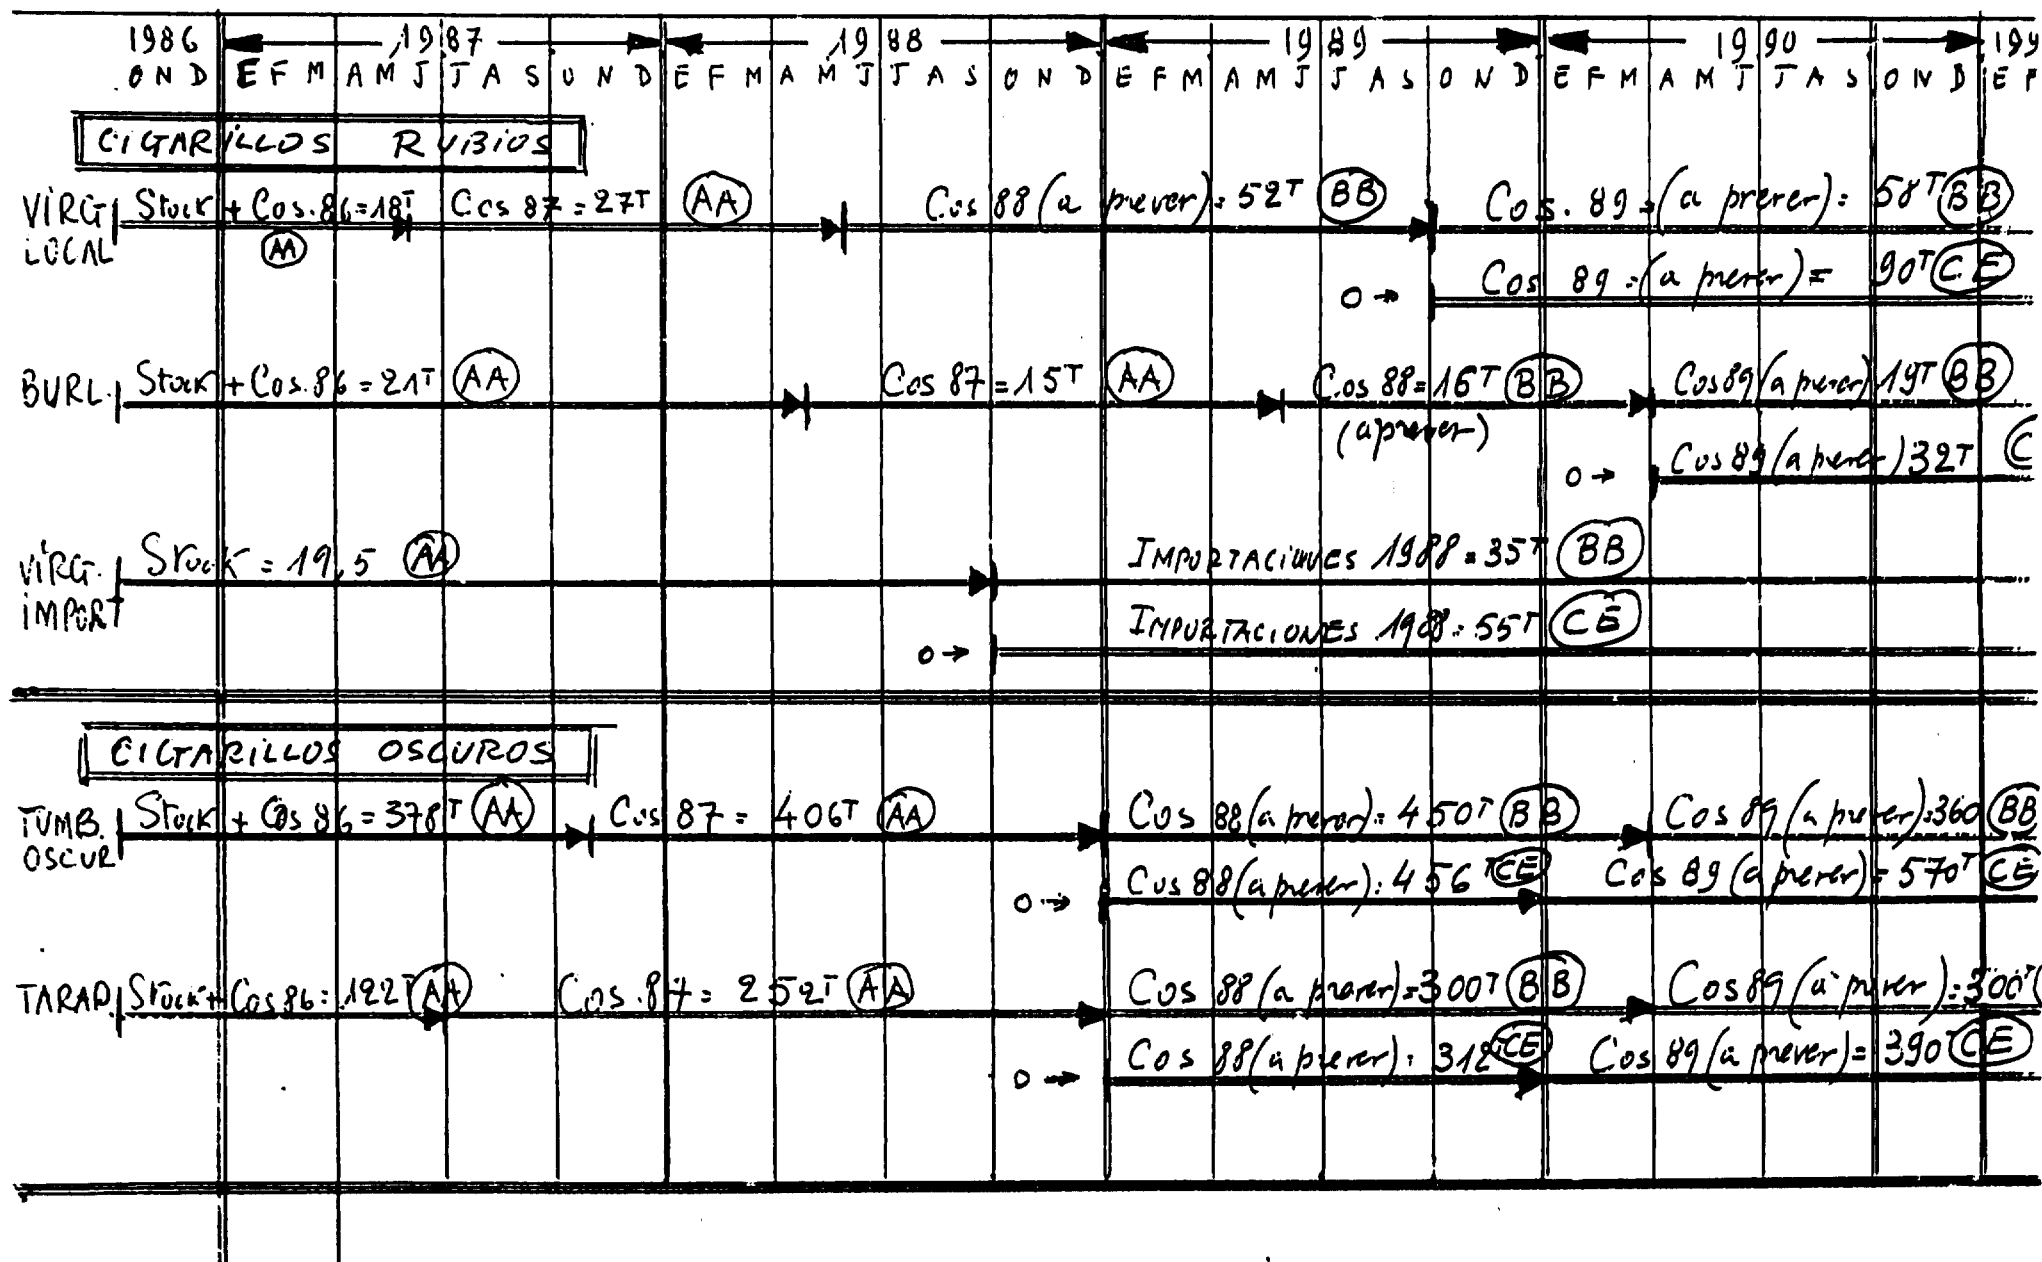 1986 1987 1988 1989 1990 199
O N D E F M A M J J A S O N D E F M A M J J A S O N D E F M A M J J A S O N D E F M A M J J A S O N D E F
CIGARILLOS RUBIOS
VIRG. LOCAL Stock + Cos.86=18T AA Cos 87=27T AA Cos 88 (a prever)= 52T BB Cos. 89 = (a prever)= 58T BB
0 → Cos 89 = (a prever) = 90T CE
BURL. Stock + Cos.86=21T AA Cos 87=15T AA Cos 88=16T BB (a prever) Cos 89 (a prever) 19T BB
0 → Cos 89 (a prever) 32T C
VIRG. IMPORT Stock = 19,5 AA IMPORTACIONES 1988=35T BB
0 → IMPORTACIONES 1988=55T CE
CIGARILLOS OSCUROS
TUMB. OSCUR Stock + Cos 86=378T AA Cos 87= 406T AA Cos 88 (a prever)= 450T BB Cos 89 (a prever)=360 BB
0 → Cos 88 (a prever)= 456T CE Cos 89 (a prever)= 570T CE
TARAP. Stock + Cos 86= 122T AA Cos.87= 252T AA Cos 88 (a prever)=300T BB Cos 89 (a prever)=300T
0 → Cos 88 (a prever)= 312T CE Cos 89 (a prever)= 390T CE